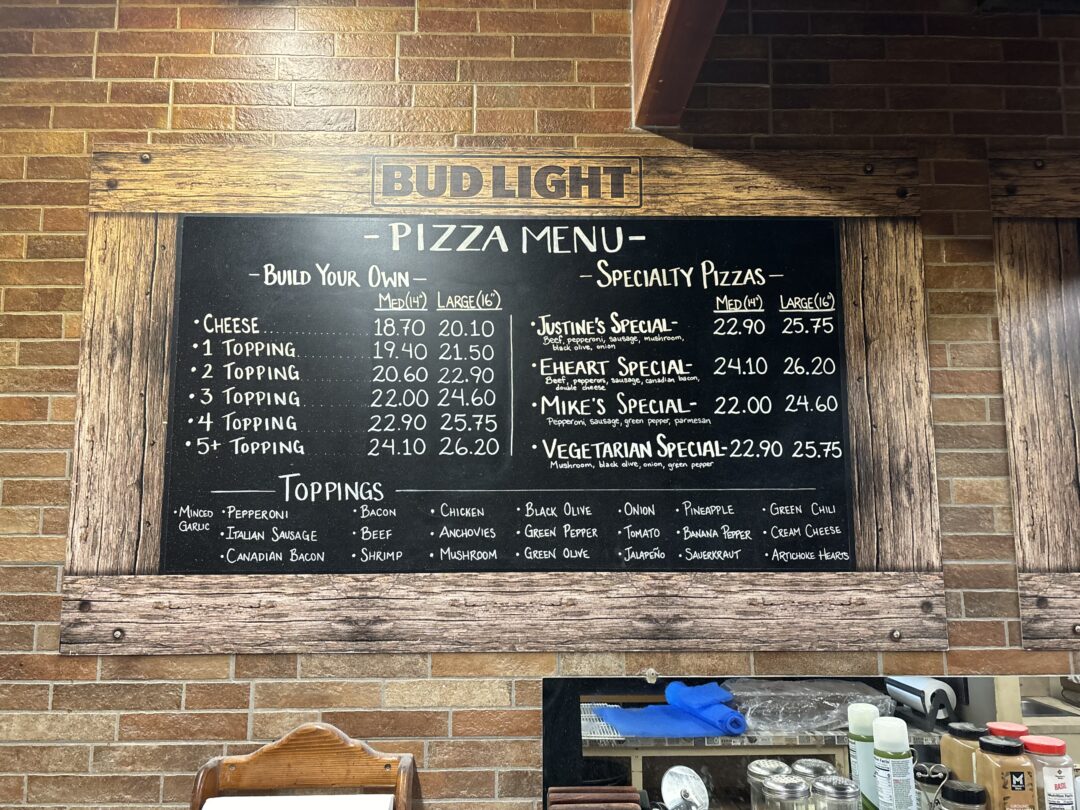 BUD LIGHT
- PIZZA MENU -
- BUILD YOUR OWN -
MED (14") LARGE (16")
• CHEESE 18.70 20.10
• 1 TOPPING 19.40 21.50
• 2 TOPPING 20.60 22.90
• 3 TOPPING 22.00 24.60
• 4 TOPPING 22.90 25.75
• 5+ TOPPING 24.10 26.20
- SPECIALTY PIZZAS -
MED (14") LARGE (16")
• JUSTINE'S SPECIAL- 22.90 25.75
Beef, pepperoni, sausage, mushroom,
black olive, onion
• EHEART SPECIAL- 24.10 26.20
Beef, pepperoni, sausage, canadian bacon,
double cheese
• MIKE'S SPECIAL- 22.00 24.60
Pepperoni, sausage, green pepper, parmesan
• VEGETARIAN SPECIAL- 22.90 25.75
Mushroom, black olive, onion, green pepper
TOPPINGS
• MINCED GARLIC • PEPPERONI • BACON • CHICKEN • BLACK OLIVE • ONION • PINEAPPLE • GREEN CHILI
• ITALIAN SAUSAGE • BEEF • ANCHOVIES • GREEN PEPPER • TOMATO • BANANA PEPPER • CREAM CHEESE
• CANADIAN BACON • SHRIMP • MUSHROOM • GREEN OLIVE • JALAPEÑO • SAUERKRAUT • ARTICHOKE HEARTS
M
BASIL